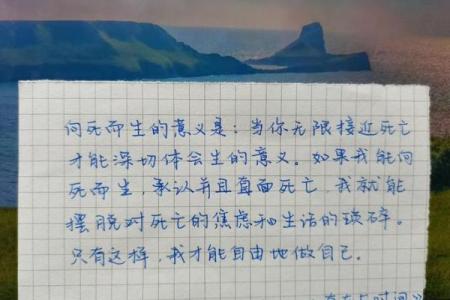 向死而生的意义是：当你无限接近死亡
才能深切体会生的意义。如果我能向
死而生，承认并且直面死亡，我就能
摆脱对死亡的焦虑和生活的琐碎。
只有这样，我才能自由地做自己。
与时间》